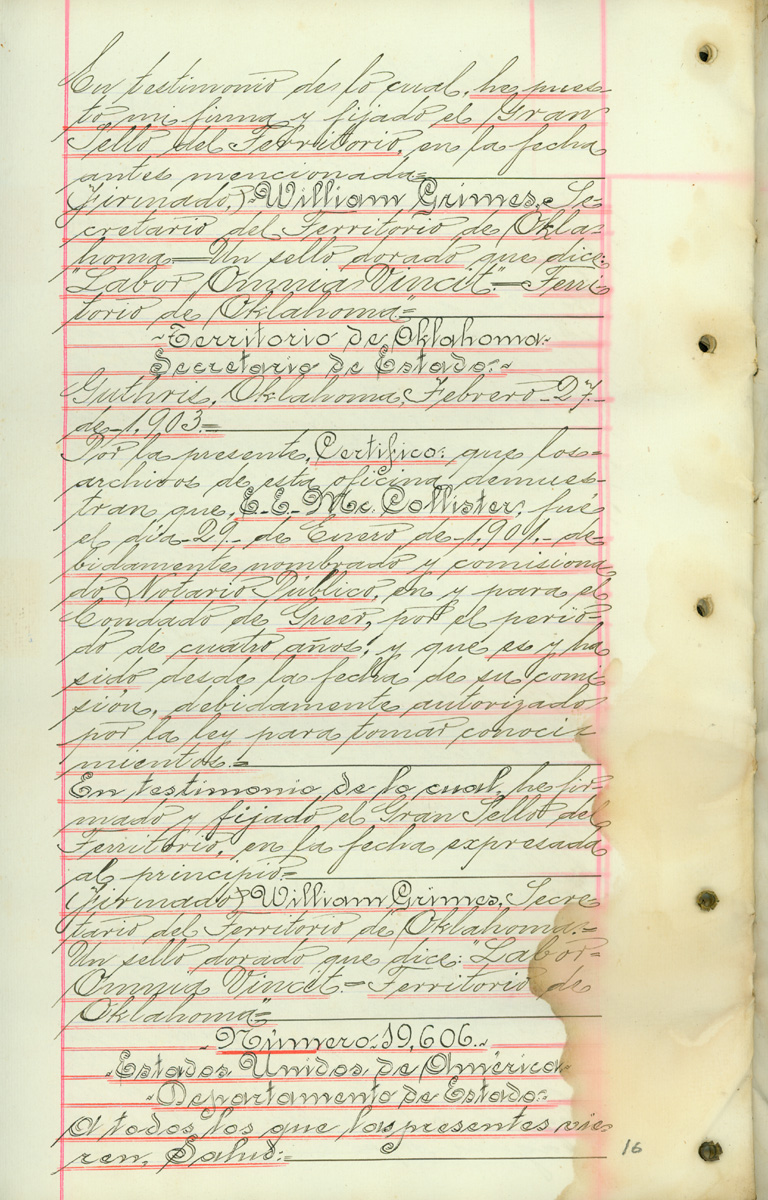 En testimonio de lo cual, he pues-
to mi firma y fijado el Gran
Sello del Territorio, en la fecha
antes mencionada=
Firmado,) "William Grimes, Se-
cretario del Territorio de Okla-
homa.=Un sello dorado que dice:
"Labor Omnia Vincit."=Terri
torio de Oklahoma"=
-Territorio de Oklahoma-
Secretario de Estado.-
Guthris, Oklahoma, Febrero-27-
de-1,903.=
Por la presente, Certifico: que los-
archivos de esta oficina demues-
tran que, E.E. Mc. Collister, fué
el día-29-de Enero de-1,901,-de-
bidamente nombrado y comisiona
do Notario Público, en y para el
Condado de Greer, por el perio-
do de cuatro años, y que es y ha
sido desde la fecha de su comi
sión, debidamente autorizado
por la ley para tomar conoci-
mientos.=
En testimonio de lo cual, he fir-
mado y fijado el Gran Sello del
Territorio, en la fecha expresada
al principio=
Firmado) William Grimes, Secre-
tario del Territorio de Oklahoma.=
Un sello dorado que dice: "Labor-
Omnia Vincit.=Territorio de
Oklahoma"=
-Número:19,606.-
-Estados Unidos de América-
-Departamento de Estado:-
A todos los que las presentes vie-
ren, Salud:=
16